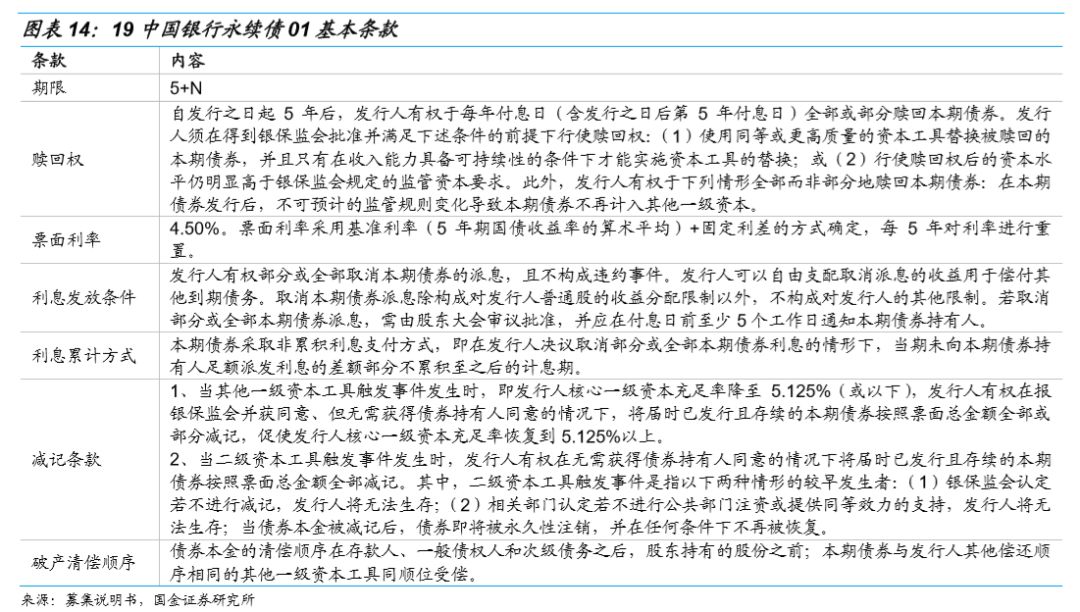 图表 14：19 中国银行永续债 01 基本条款
条款 内容
期限 5+N
自发行之日起 5 年后，发行人有权于每年付息日（含发行之日后第 5 年付息日）全部或部分赎回本期债券。发行
人须在得到银保监会批准并满足下述条件的前提下行使赎回权：（1）使用同等或更高质量的资本工具替换被赎回的
赎回权 本期债券，并且只有在收入能力具备可持续性的条件下才能实施资本工具的替换；或（2）行使赎回权后的资本水
平仍明显高于银保监会规定的监管资本要求。此外，发行人有权于下列情形全部而非部分地赎回本期债券：在本期
债券发行后，不可预计的监管规则变化导致本期债券不再计入其他一级资本。
票面利率 4.50%。票面利率采用基准利率（5 年期国债收益率的算术平均）+固定利差的方式确定，每 5 年对利率进行重
置。
发行人有权部分或全部取消本期债券的派息，且不构成违约事件。发行人可以自由支配取消派息的收益用于偿付其
利息发放条件 他到期债务。取消本期债券派息除构成对发行人普通股的收益分配限制以外，不构成对发行人的其他限制。若取消
部分或全部本期债券派息，需由股东大会审议批准，并应在付息日前至少 5 个工作日通知本期债券持有人。
利息累计方式 本期债券采取非累积利息支付方式，即在发行人决议取消部分或全部本期债券利息的情形下，当期未向本期债券持
有人足额派发利息的差额部分不累积至之后的计息期。
1、当其他一级资本工具触发事件发生时，即发行人核心一级资本充足率降至 5.125%（或以下），发行人有权在报
银保监会并获同意、但无需获得债券持有人同意的情况下，将届时已发行且存续的本期债券按照票面总金额全部或
部分减记，促使发行人核心一级资本充足率恢复到 5.125%以上。
减记条款 2、当二级资本工具触发事件发生时，发行人有权在无需获得债券持有人同意的情况下将届时已发行且存续的本期
债券按照票面总金额全部减记。其中，二级资本工具触发事件是指以下两种情形的较早发生者：（1）银保监会认定
若不进行减记，发行人将无法生存；（2）相关部门认定若不进行公共部门注资或提供同等效力的支持，发行人将无
法生存；当债券本金被减记后，债券即将被永久性注销，并在任何条件下不再被恢复。
破产清偿顺序 债券本金的清偿顺序在存款人、一般债权人和次级债务之后，股东持有的股份之前；本期债券与发行人其他偿还顺
序相同的其他一级资本工具同顺位受偿。
来源：募集说明书，国金证券研究所